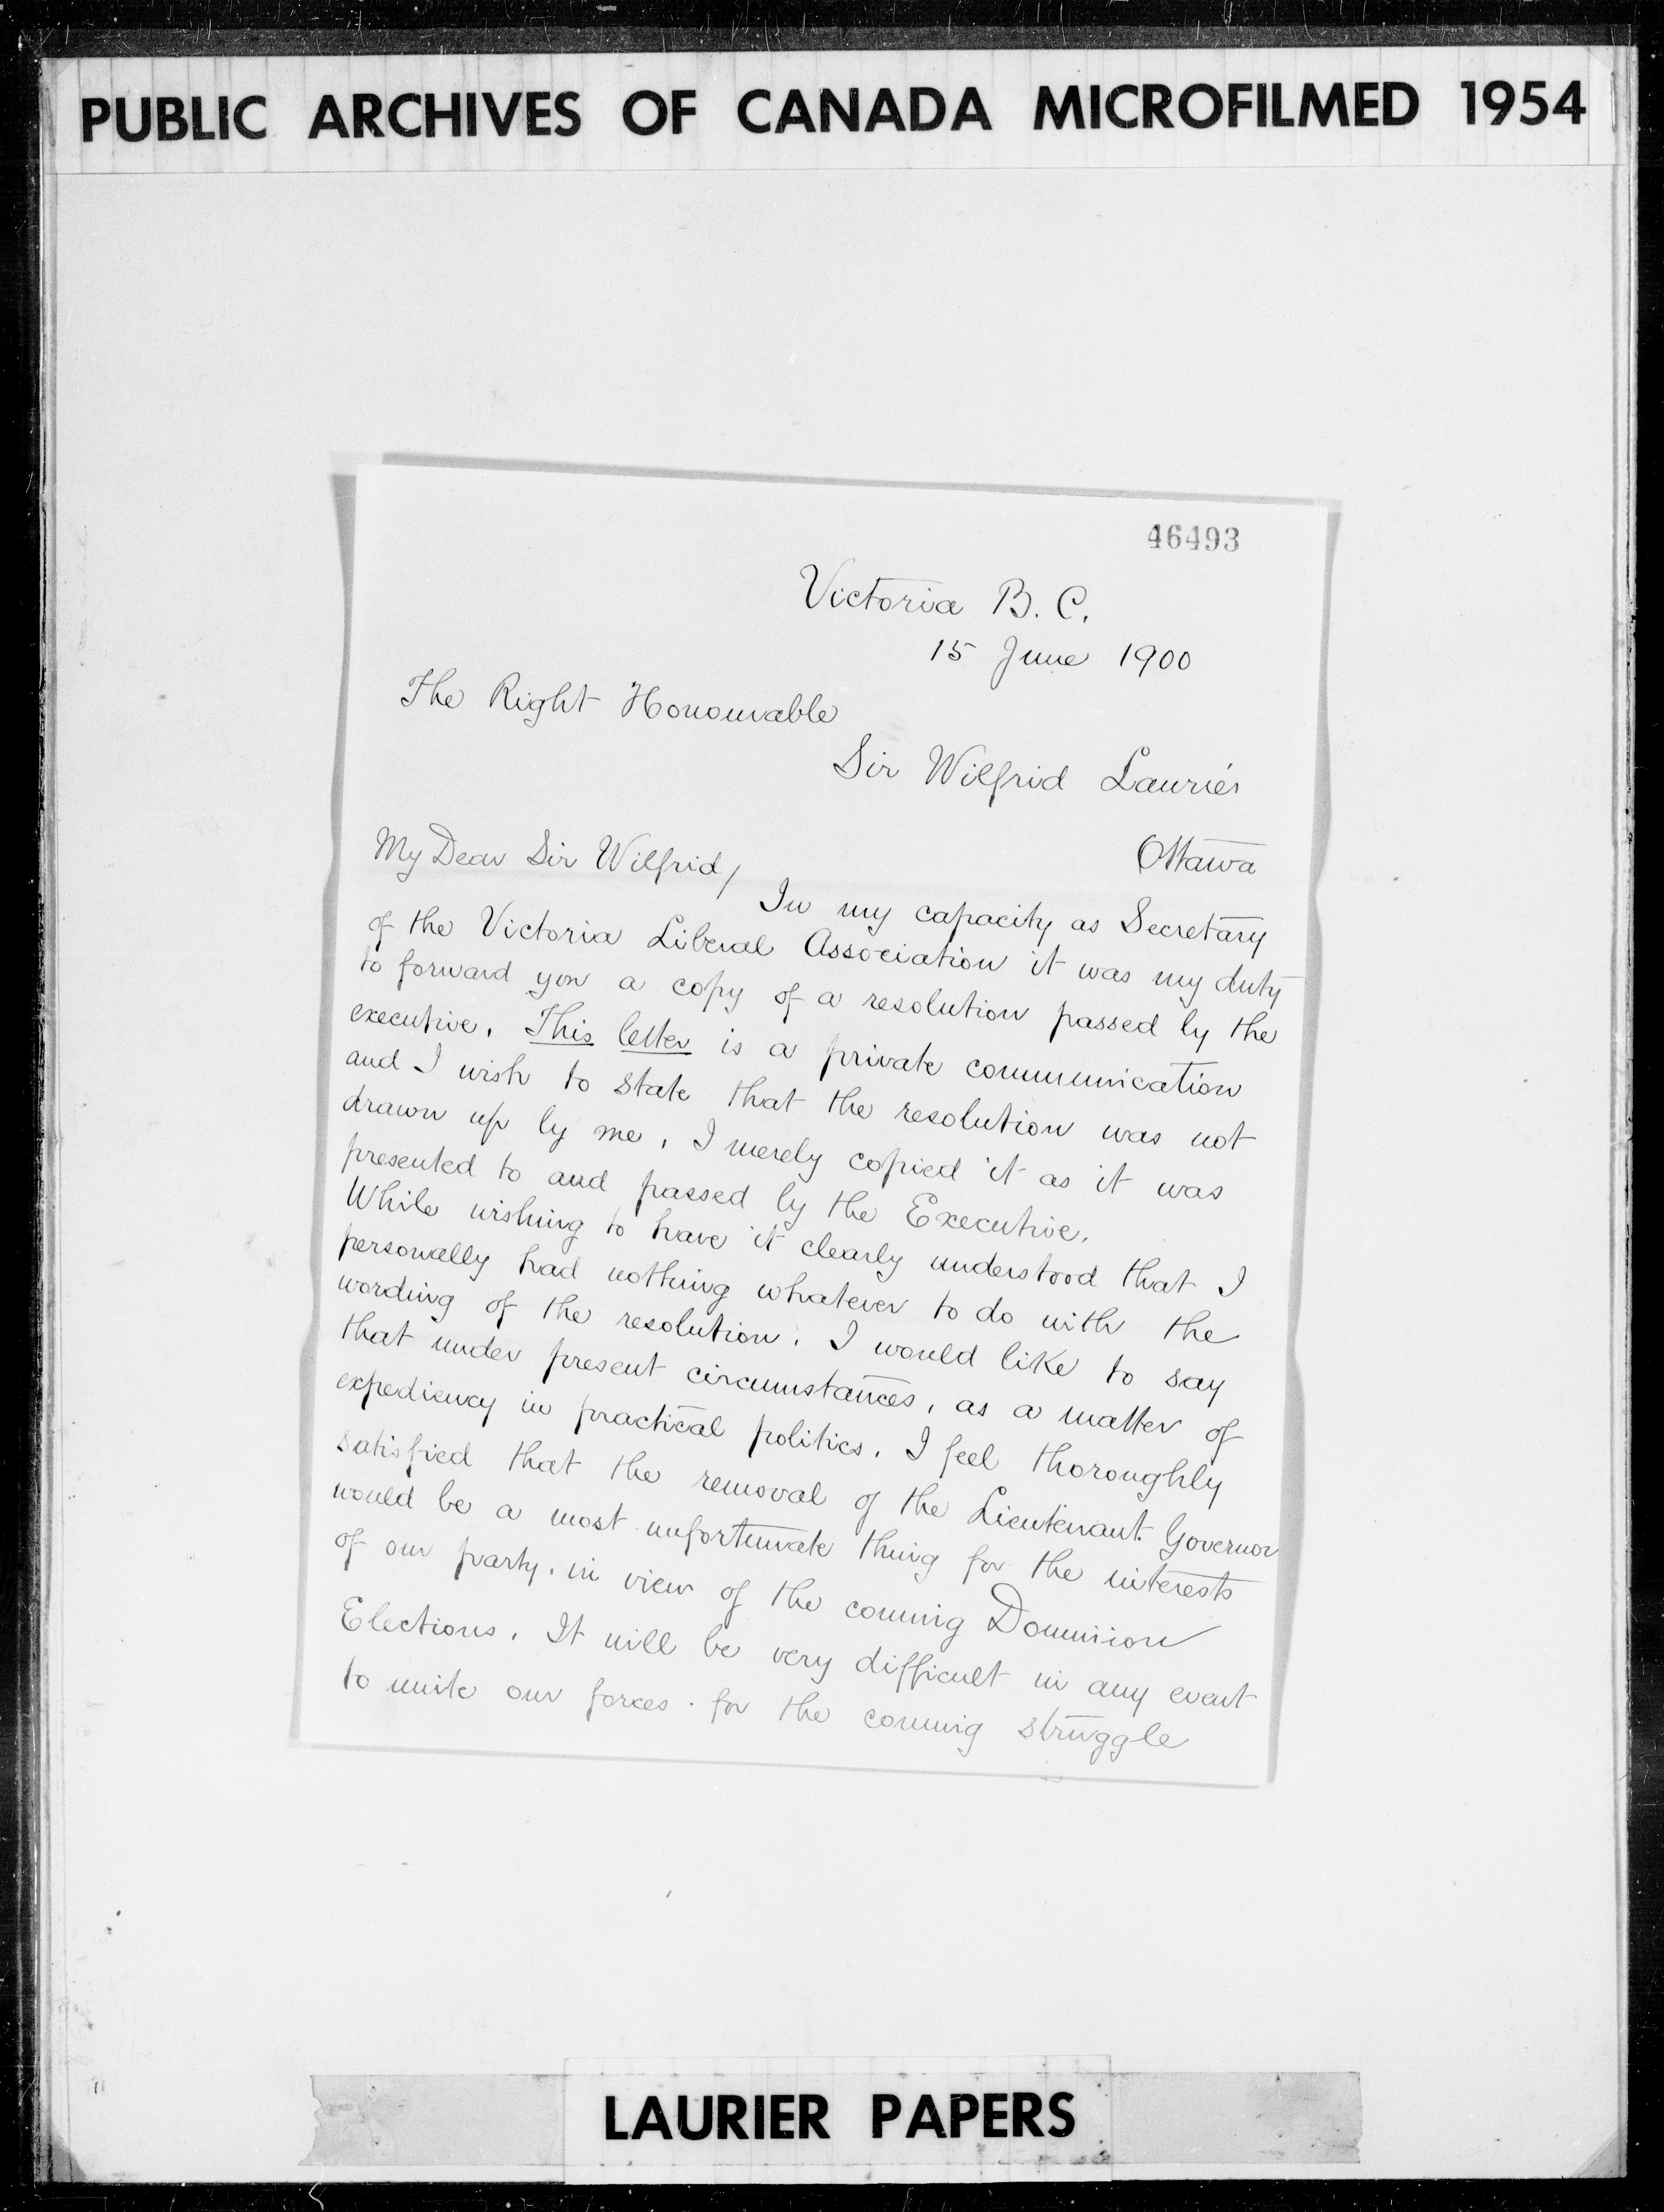 PUBLIC ARCHIVES OF CANADA MICROFILMED 1954
46493
Victoria B. C.
15 June 1900
The Right Honourable
Sir Wilfrid Laurier
Ottawa
My Dear Sir Wilfrid,
In my capacity as Secretary
of the Victoria Liberal Association it was my duty
to forward you a copy of a resolution passed by the
executive. This letter is a private communication
and I wish to state that the resolution was not
drawn up by me, I merely copied it as it was
presented to and passed by the Executive.
While wishing to have it clearly understood that I
personally had nothing whatever to do with the
wording of the resolution. I would like to say
that under present circumstances, as a matter of
expediency in practical politics. I feel thoroughly
satisfied that the removal of the Lieutenant. Governor
would be a most unfortunate thing for the interests
of our party. in view of the coming Dominion
Elections. It will be very difficult in any event
to unite our forces. for the coming struggle
LAURIER PAPERS